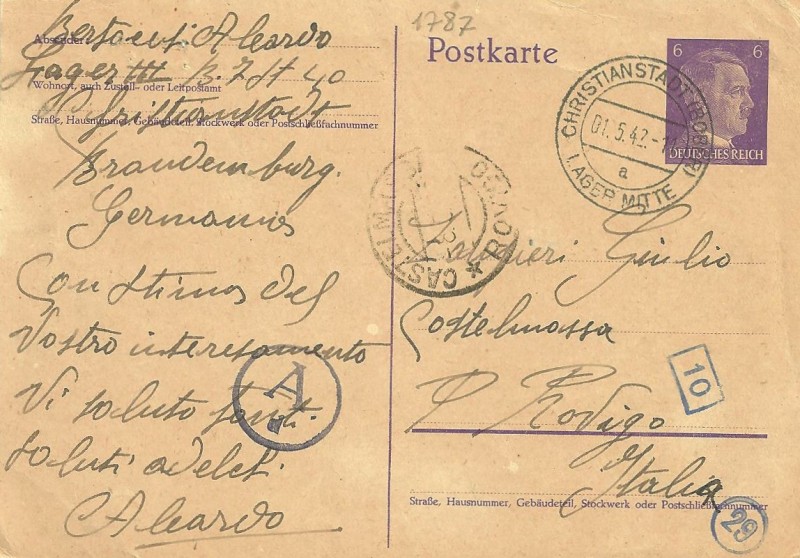 1787
Absender:
Alcardo
Lager III B. 7 St 40
Wohnort, auch Zustell- oder Leitpostamt
Christianstadt
Straße, Hausnummer, Gebäudeteil, Stockwerk oder Postschließfachnummer
Brandemburg.
Germania
Con stima del
Vostro interesamento
Vi saluto tanti
saluti adelchi
Alcardo
A
Postkarte
6 6
DEUTSCHES REICH
CHRISTIANSTADT (BOBER)
01.5.42.-
a
LAGER MITTE
CASTELM
ROVIGO
Giulio
Castelmassa
P Rovigo
Italia
10
Straße, Hausnummer, Gebäudeteil, Stockwerk oder Postschließfachnummer
29